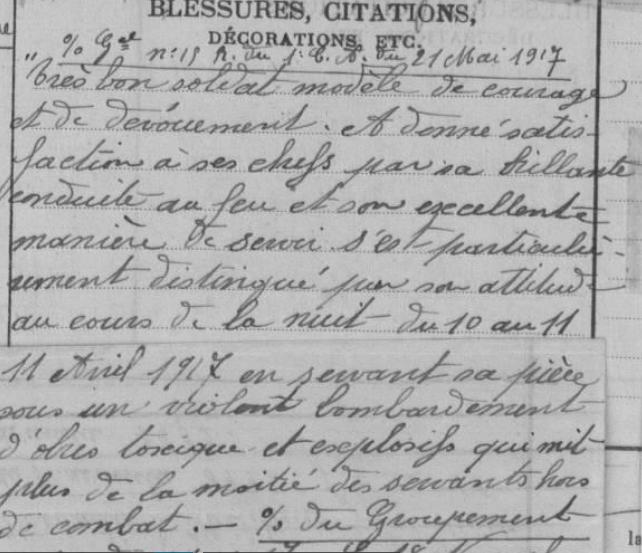 BLESSURES, CITATIONS,
DÉCORATIONS, ETC.
" % Gal n: 15 R. du 1: C. A. du 21 Mai 1917
très bon soldat modèle de courage
et de dévouement. A donné satis-
faction à ses chefs par sa brillante
conduite au feu et son excellente
manière de servir s'est particuliè-
rement distingué par son attitude
au cours de la nuit du 10 au 11
11 Avril 1917 en servant sa pièce
sous un violent bombardement
d'obus toxique et explosifs qui mit
plus de la moitié des servants hors
de combat. — % du Groupement